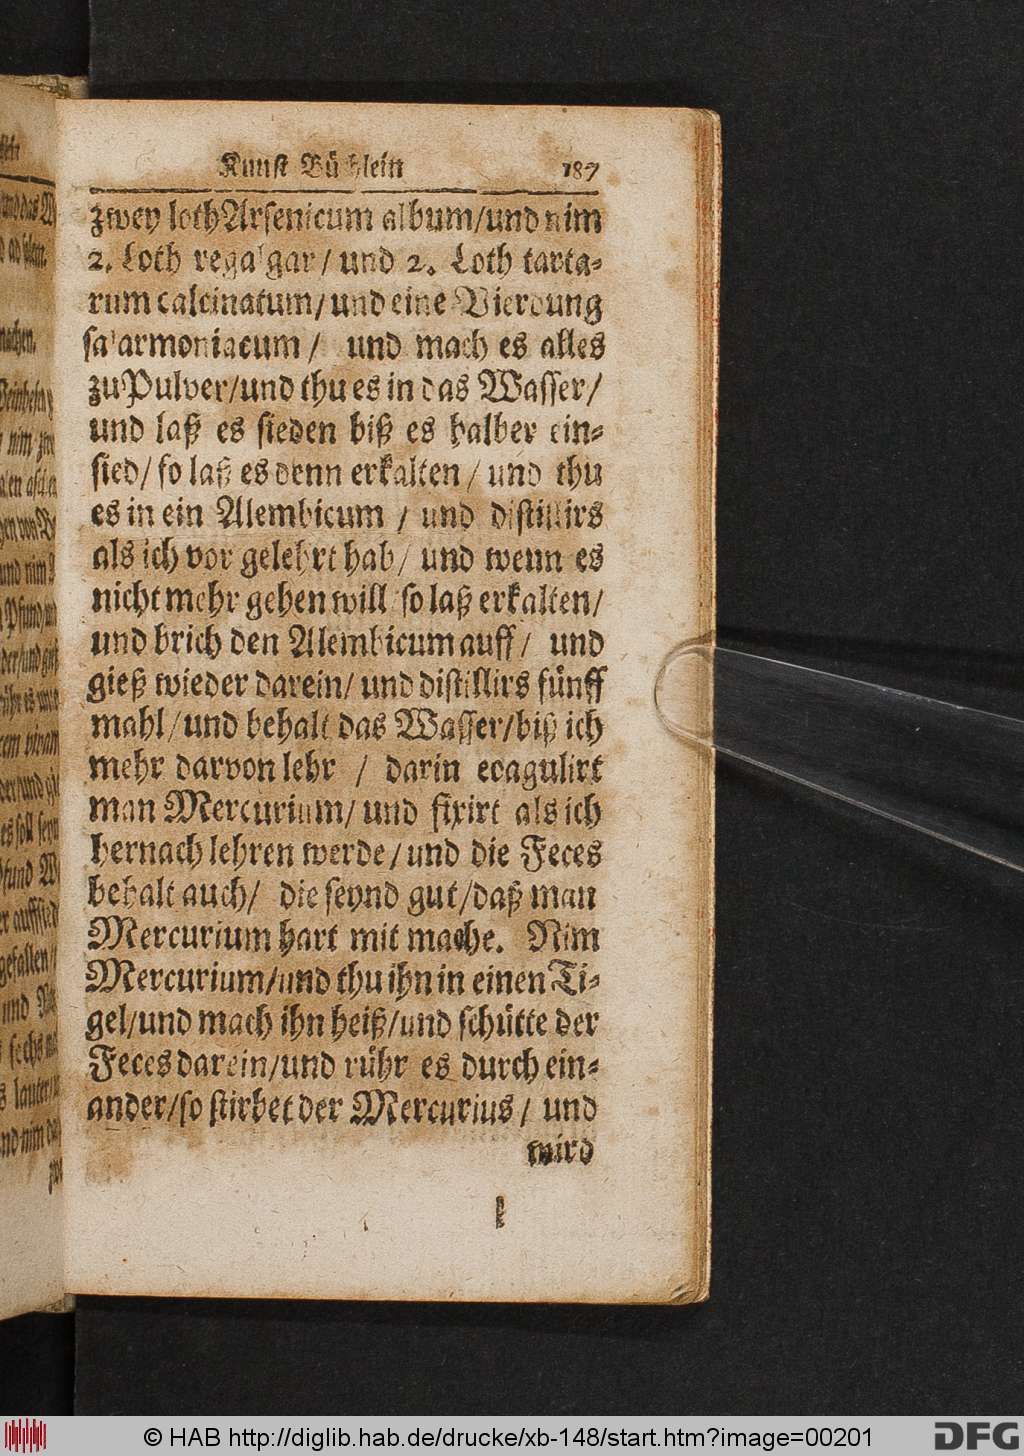 Kunst Büchlein 187
zwey loth Arsenicum album/und nim
2. Loth regalgar / und 2. Loth tarta-
rum calcinatum/ und eine Vierdung
salarmoniacum / und mach es alles
zu Pulver/und thu es in das Wasser/
und laß es sieden biß es halber ein-
sied/ so laß es denn erkalten / und thu
es in ein Alembicum / und distillirs
als ich vor gelehrt hab/ und wenn es
nicht mehr gehen will/ so laß erkalten/
und brich den Alembicum auff/ und
gieß wieder darein/ und distillirs fünff
mahl/und behalt das Wasser/biß ich
mehr darvon lehr / darin coagulirt
man Mercurium/ und fixirt als ich
hernach lehren werde/und die Feces
behalt auch/ die seynd gut/daß man
Mercurium hart mit mache. Nim
Mercurium/und thu ihn in einen Ti-
gel/und mach ihn heiß/und schütte der
Feces darein/und rühr es durch ein-
ander/so stirbet der Mercurius/ und
wird
© HAB http://diglib.hab.de/drucke/xb-148/start.htm?image=00201
DFG